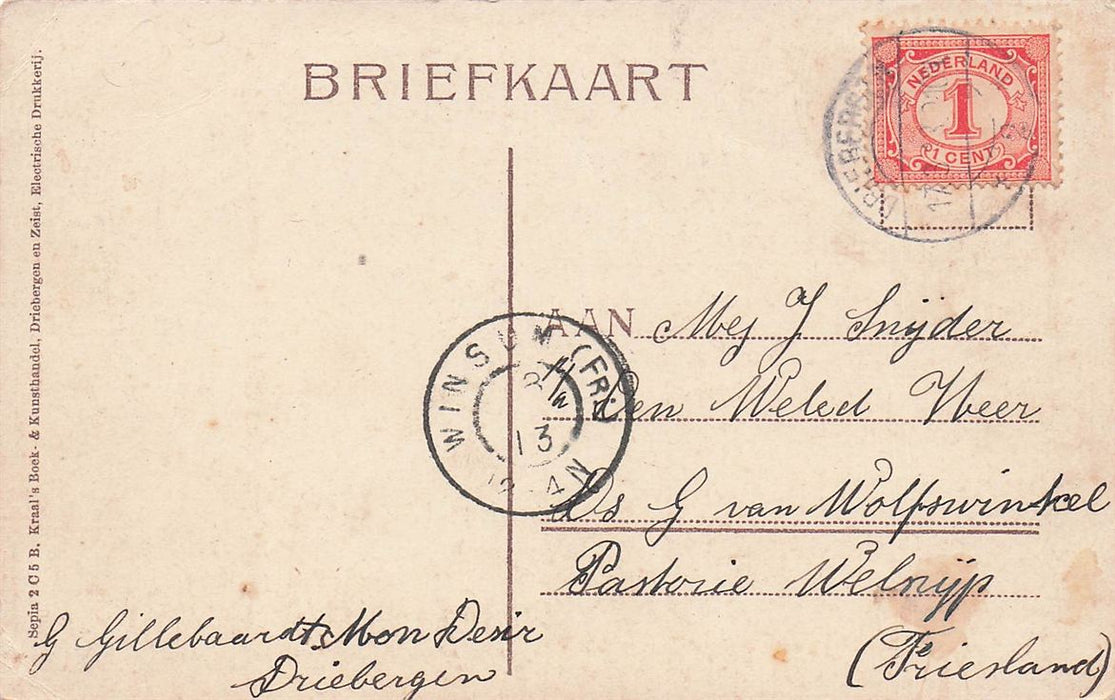 BRIEFKAART
NEDERLAND
1
1 CENT
AAN Mej J Snijder
Den Weled Heer
Ds G van Wolfswinkel
Pastorie Welrijp
(Friesland)
WINSUM (FRL)
13
2-4 N
G Gillebaardt. Mon Desir
Driebergen
Sepia 2 C 5 B. Kraal's Boek- & Kunsthandel, Driebergen en Zeist, Electrische Drukkerij.